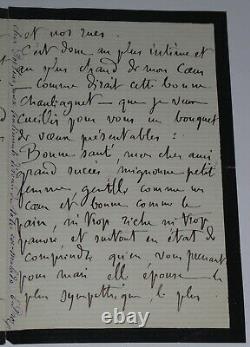 et nos rues.
C'est donc au plus intime et
au plus chaud de mon Cœur
comme dirait cette bonne
que je veux
cueillir pour vous un bouquet
de vœux présentables :
Bonne santé, mon cher ami
grand succès, mignonne petite
femme, gentille comme un
cœur et bonne comme le
pain, ni trop riche ni trop
pauvre, et surtout en état de
comprendre qu'en vous prenant
pour mari elle épouse le
plus sympathique, le plus
© ebay.com